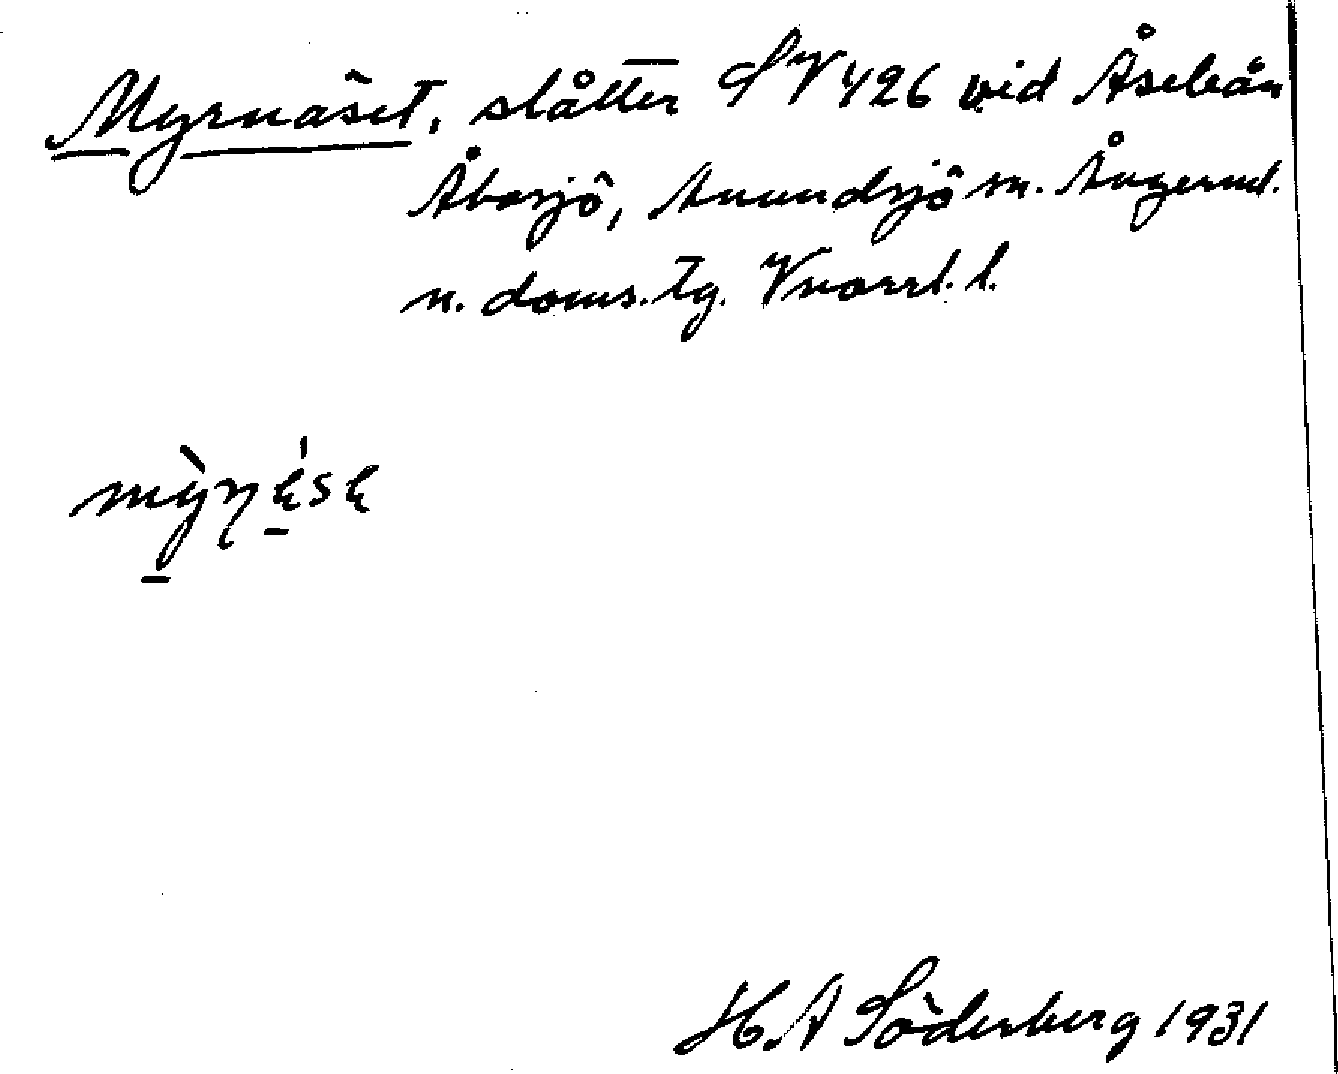 Myrnäset, slåtter SV 426 vid Åseleån
Åbosjö, Anundsjö sn. Ångerml.
n. doms. tg. Vnorrl. l.
mỳɳɛ́sɛ
H. A Söderberg 1931